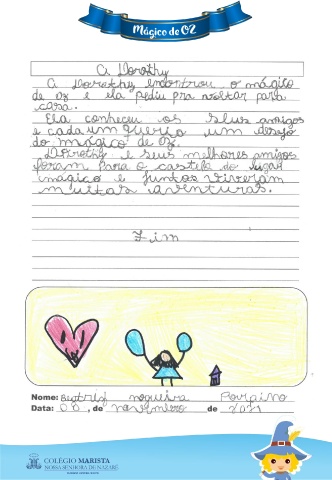 Mágico de OZ
A Dorothy
A Dorothy encontrou o mágico
de oz e ela pediu pra voltar para
casa.
Ela conheceu os seus amigos
e cada um queria um desejo
do mágico de Oz.
Dorothy e seus melhores amigos
foram para o castelo do lugar
mágico e juntos viveram
muitas aventuras.
Fim
Nome: Beatriz nogueira
Data: de novembro de 2021
COLÉGIO MARISTA
NOSSA SENHORA DE NAZARÉ